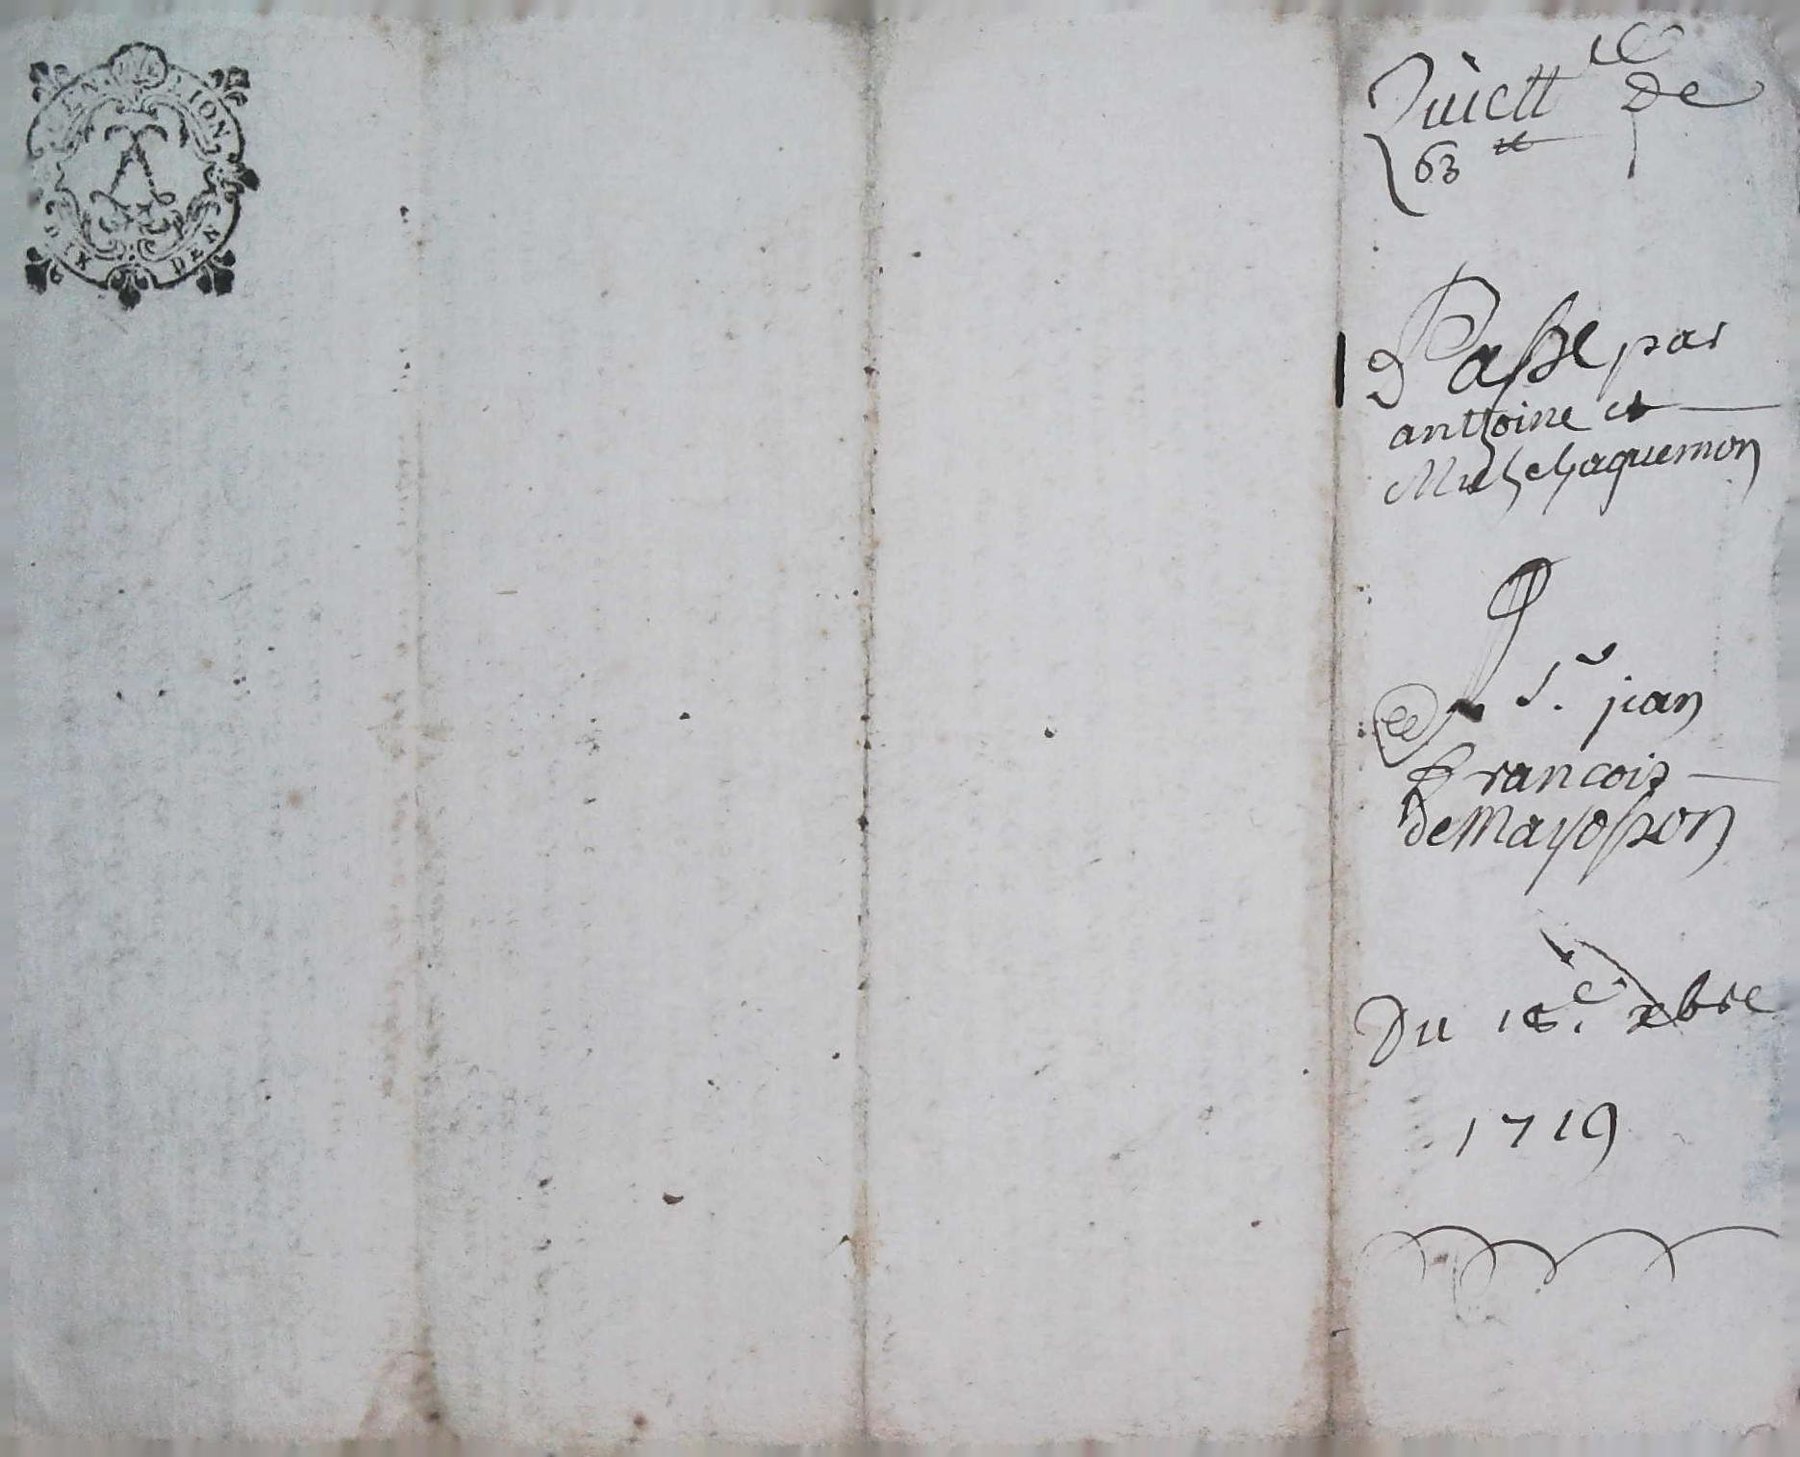 GEN. LION
DIX DEN
Quictt ce de
63 tt
Passe par
anthoine et
Michel jaquemon
A Sr. jean
francois
de Mayosson
Du 18e. xbre
1719